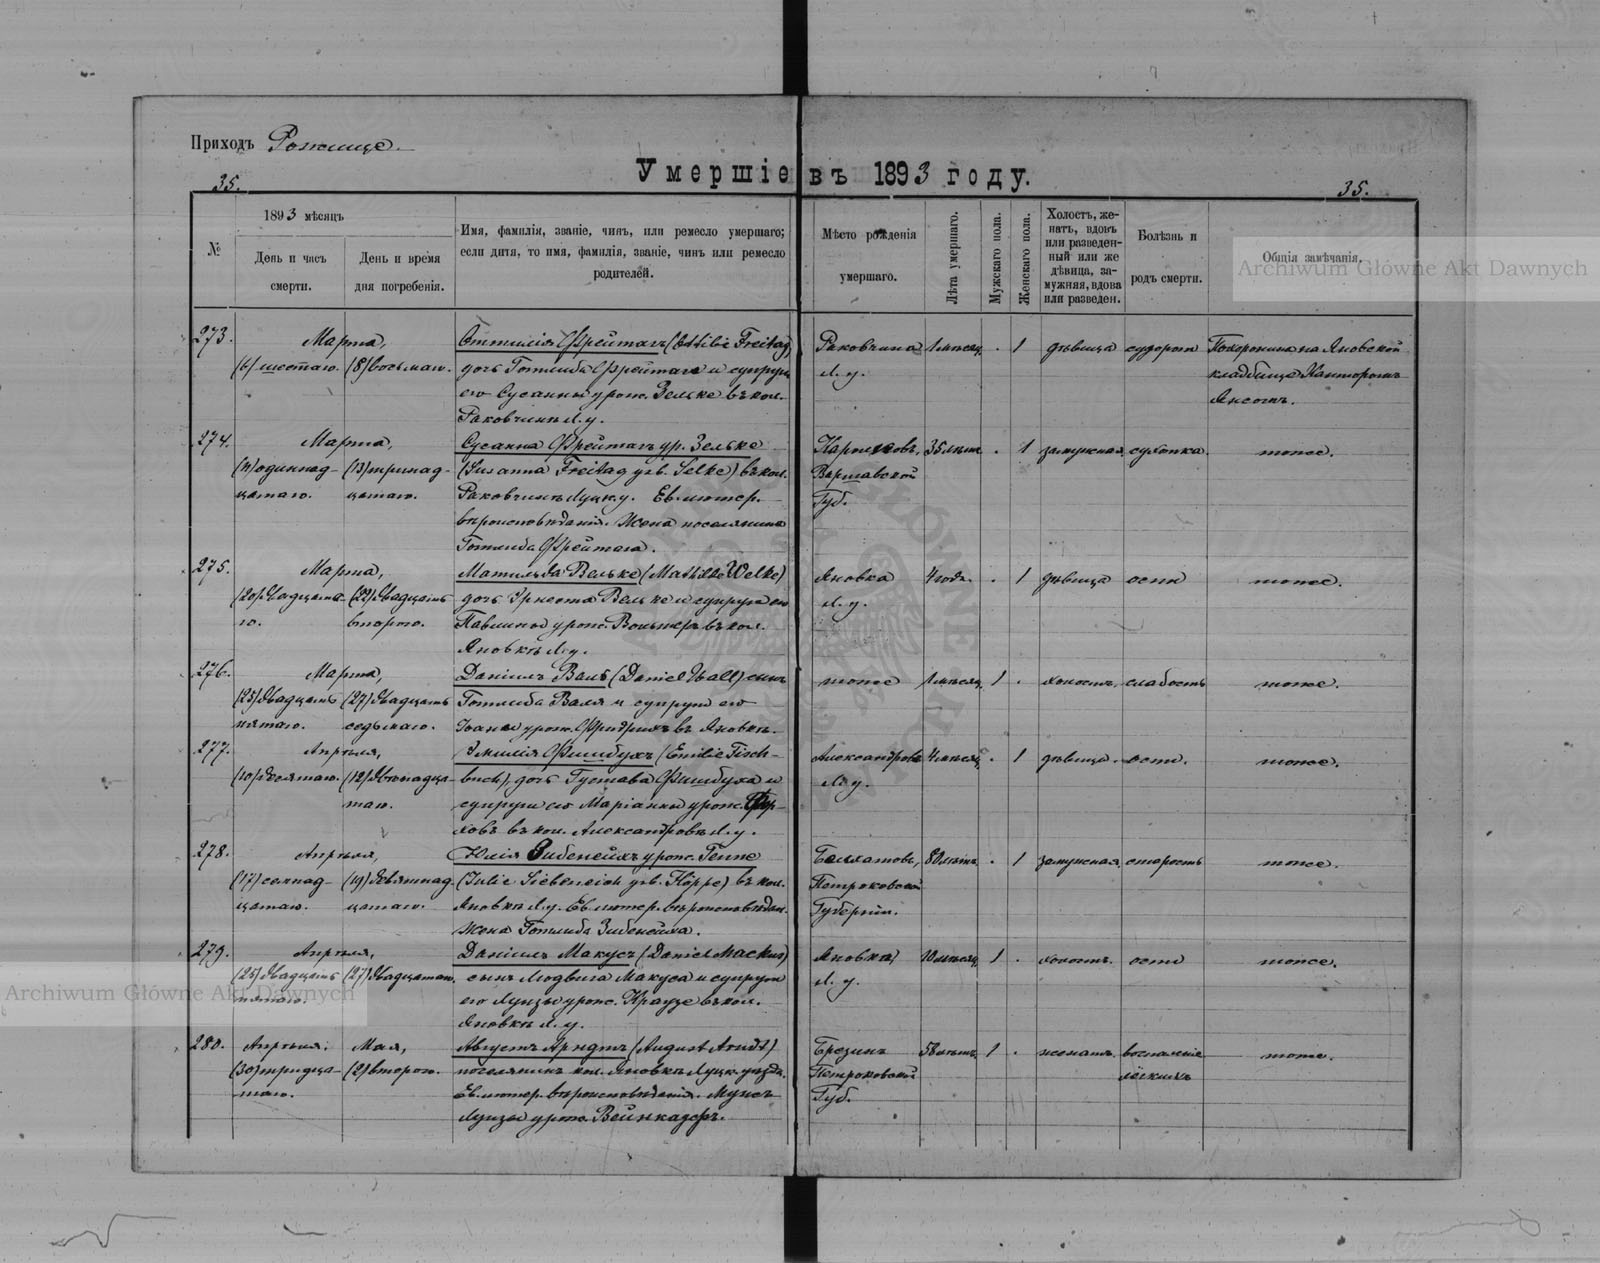 Приходъ Рожище.
Умершіе въ 1893 году.
35.
35.
№
1893 мѣсяцъ
День и часъ
смерти.
День и время
дня погребенія.
Имя, фамилія, званіе, чинъ, или ремесло умершаго;
если дитя, то имя, фамилія, званіе, чинъ или ремесло
родителей.
Мѣсто рожденія
умершаго.
Лѣта умершаго.
Мужскаго пола.
Женскаго пола.
Холостъ, же-
натъ, вдовъ
или разведен-
ный или же
дѣвица, за-
мужняя, вдова
или разведен.
Болѣзнь и
родъ смерти.
Общія замѣчанія.
Archiwum Główne Akt Dawnych
273.
Марта,
(6) шестаго.
(8) восьмаго.
Оттилія Фрейтагъ (Ottilie Freitag)
дочь Готлиба Фрейтага и супруги
его Сусанны урож. Зельке въ кол.
Раковчинѣ Л. у.
Раковчина
Л. у.
1 мѣсяц.
. 1
дѣвица
судорога
Похоронила на Яновской
кладбище Канторомъ
274.
Марта,
(11) одиннад-
цатаго.
(13) тринад-
цатаго.
Сусанна Фрейтагъ ур. Зельке
(Susanna Freitag geb. Selke) въ кол.
Раковчинѣ Луцк. у. Ев. лютер.
вѣроисповѣданія. Жена поселянина
Готлиба Фрейтага.
Варшавской
Губ.
35 лѣтъ
. 1
замужная
сухотка
тоже.
275.
Марта,
(20) двадцата-
го.
(22) двадцать
втораго.
Матильда Вельке (Mathilde Welke)
дочь Эрнста Вельке и супруги его
Павлины урож. Вольтеръ въ кол.
Яновкѣ Л. у.
Яновка
Л. у.
4 года.
. 1
дѣвица
оспа
тоже.
276.
Марта,
(25) двадцать
пятаго.
(27) двадцать
седьмаго.
Даніилъ Валь (Daniel Wall) сынъ
Готлиба Валя и супруги его
Іоанны урож. Фридрихъ въ Яновкѣ.
тоже
1 мѣсяц.
1 .
холостъ.
слабость
тоже.
277.
Апрѣля,
(10) десятаго.
(12) двѣнадца-
таго.
Эмилія Фишбухъ (Emilie Fisch-
buch), дочь Густава Фишбуха и
супруги его Маріанны урож.
въ кол. Александровкѣ Л. у.
Александровка
Л. у.
4 мѣсяц.
. 1
дѣвица.
оспа.
тоже.
278.
Апрѣля,
(17) семнад-
цатаго.
(19) девятнад-
цатаго.
Юлія Зибенейхъ урож. Геппе
(Julie Siebeneich geb. Höppe) въ кол.
Яновкѣ Л. у. Ев. лютер. вѣроисповѣдан.
жена Готлиба Зибенейха.
Белхатовъ,
Петроковской
Губерніи.
80 лѣтъ.
. 1
замужная.
старость
тоже.
279.
Апрѣля,
(25) двадцать
пятаго.
(27) двадцатаго.
Даніилъ Макусъ (Daniel Mackus)
сынъ Людвига Макуса и супруги
его Луизы урож. Краузе въ кол.
Яновкѣ Л. у.
Яновка,
Л. у.
10 мѣсяц.
1 .
холостъ.
оспа
тоже.
Archiwum Główne Akt Dawnych
280.
Апрѣля.
(30) тридца-
таго.
Мая,
(2) втораго.
Августъ Арндтъ (August Arndt)
поселянинъ кол. Яновкѣ Луцк. уѣзда.
Ев. лютер. вѣроисповѣданія. Мужъ
Луизы урож. Вейнкадеръ.
Брезинъ
Петроковской
Губ.
58 лѣтъ.
1 .
женатъ.
воспаленіе
легкихъ
тоже.